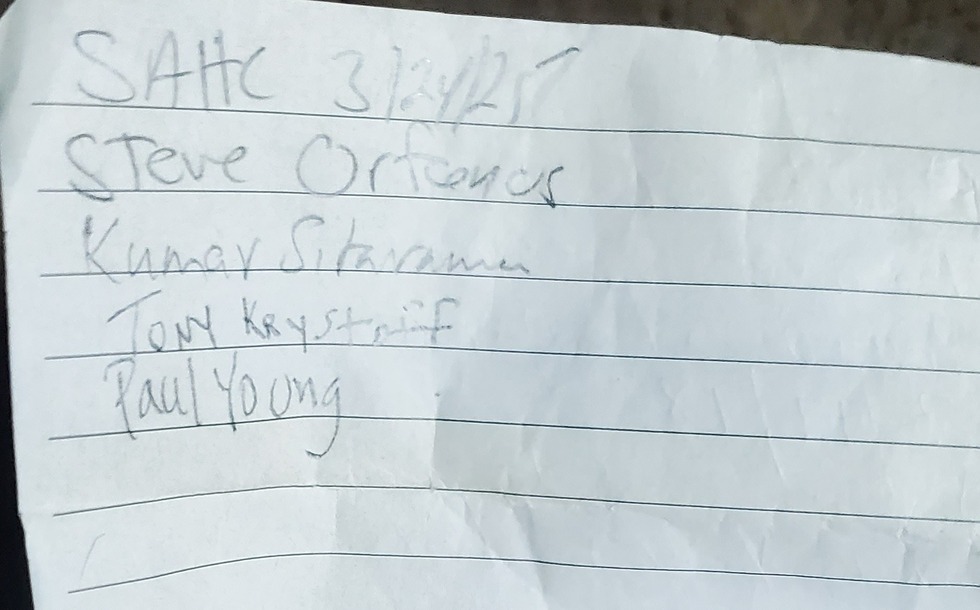 SAHC 3/24/25
Steve
Kumar Sitaraman
Tony
Paul Young